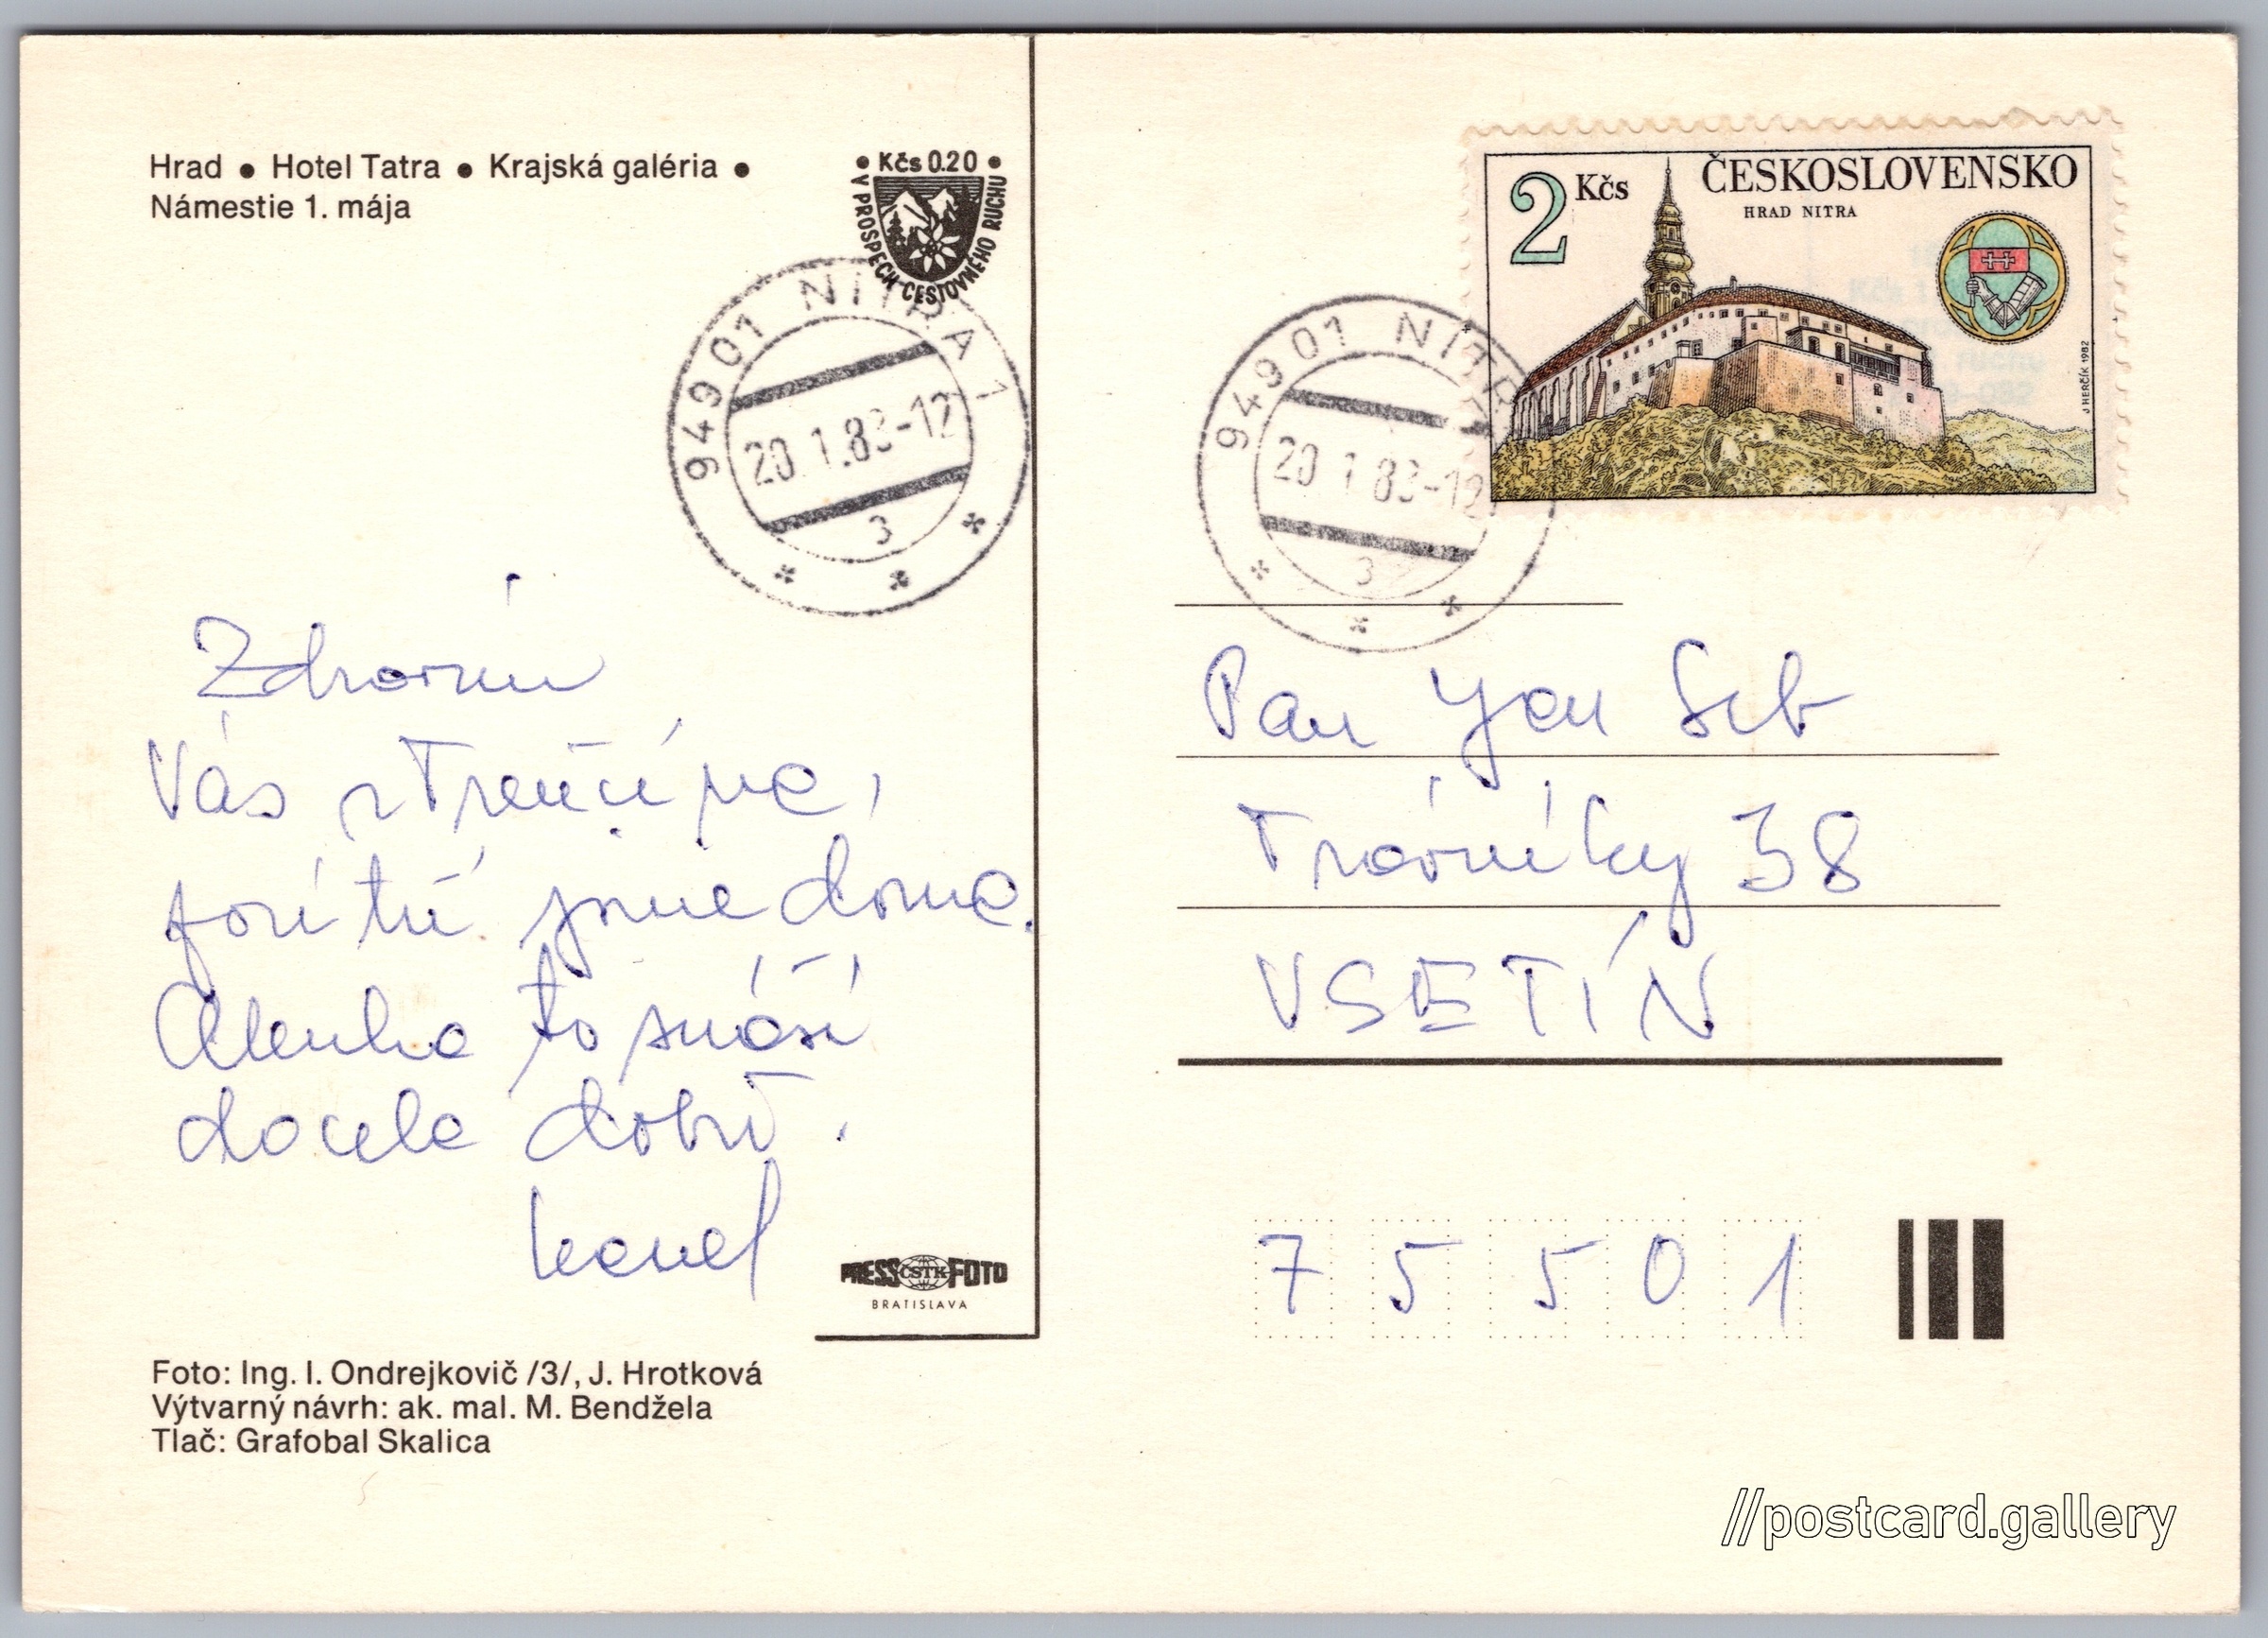 Hrad • Hotel Tatra • Krajská galéria •
Námestie 1. mája
• Kčs 0.20 •
V PROSPECH CESTOVNÉHO RUCHU
949 01 NITRA 1
20.1.83-12
3
Zdravím
Vás z Trenčína,
pozítří jsme doma.
Alenka to snáší
docela dobře.
Karel
PRESS ČSTK FOTO
BRATISLAVA
Foto: Ing. I. Ondrejkovič /3/, J. Hrotková
Výtvarný návrh: ak. mal. M. Bendžela
Tlač: Grafobal Skalica
2 Kčs ČESKOSLOVENSKO
HRAD NITRA
J HERČÍK 1982
949 01 NITRA
20 1 83-12
3
Pan Jan
Trávníky 38
VSETÍN
75501
//postcard.gallery